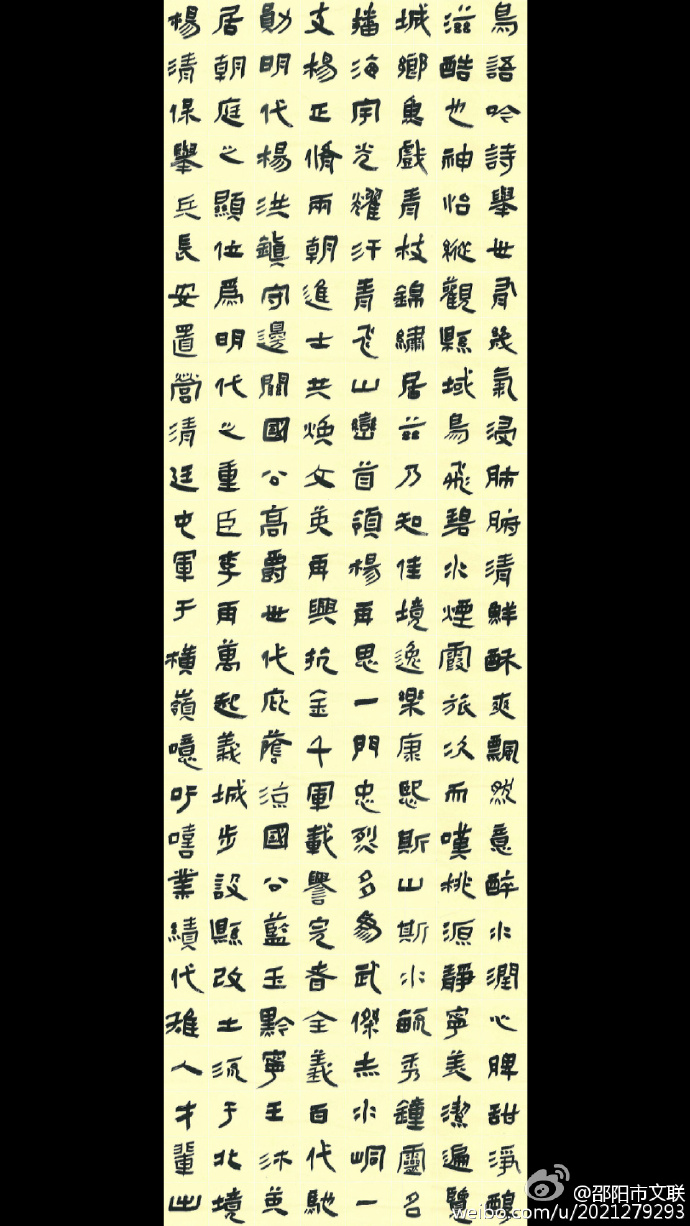 鳥語吟詩舉世有幾氣浸肺腑清鮮酥爽飄然意醉水潤心脾甜淨醇
滋酷也神怡縱觀縣域鳥飛碧水煙霞旅次而嘆桃源靜寧美潔遍覽
城鄉魚戲青枝錦繡居茲乃知佳境逸樂康熙斯山斯水毓秀鐘靈名
播海宇光耀汗青飛山蠻首領楊再思一門忠烈多為武傑赤水峒一
支楊正脩兩朝進士共煥文英再興抗金千軍載譽完者全義百代馳
勛明代楊洪鎮守邊關國公高爵世代庇蔭涼國公藍玉黔寧王沐英
居朝庭之顯位爲明代之重臣李再萬起義城步設縣改土流于北境
楊清保舉兵長安置營清廷屯軍于橫嶺噫吁嘻業績代雄人才輩出
@邵阳市文联
weibo.com/u/2021279293